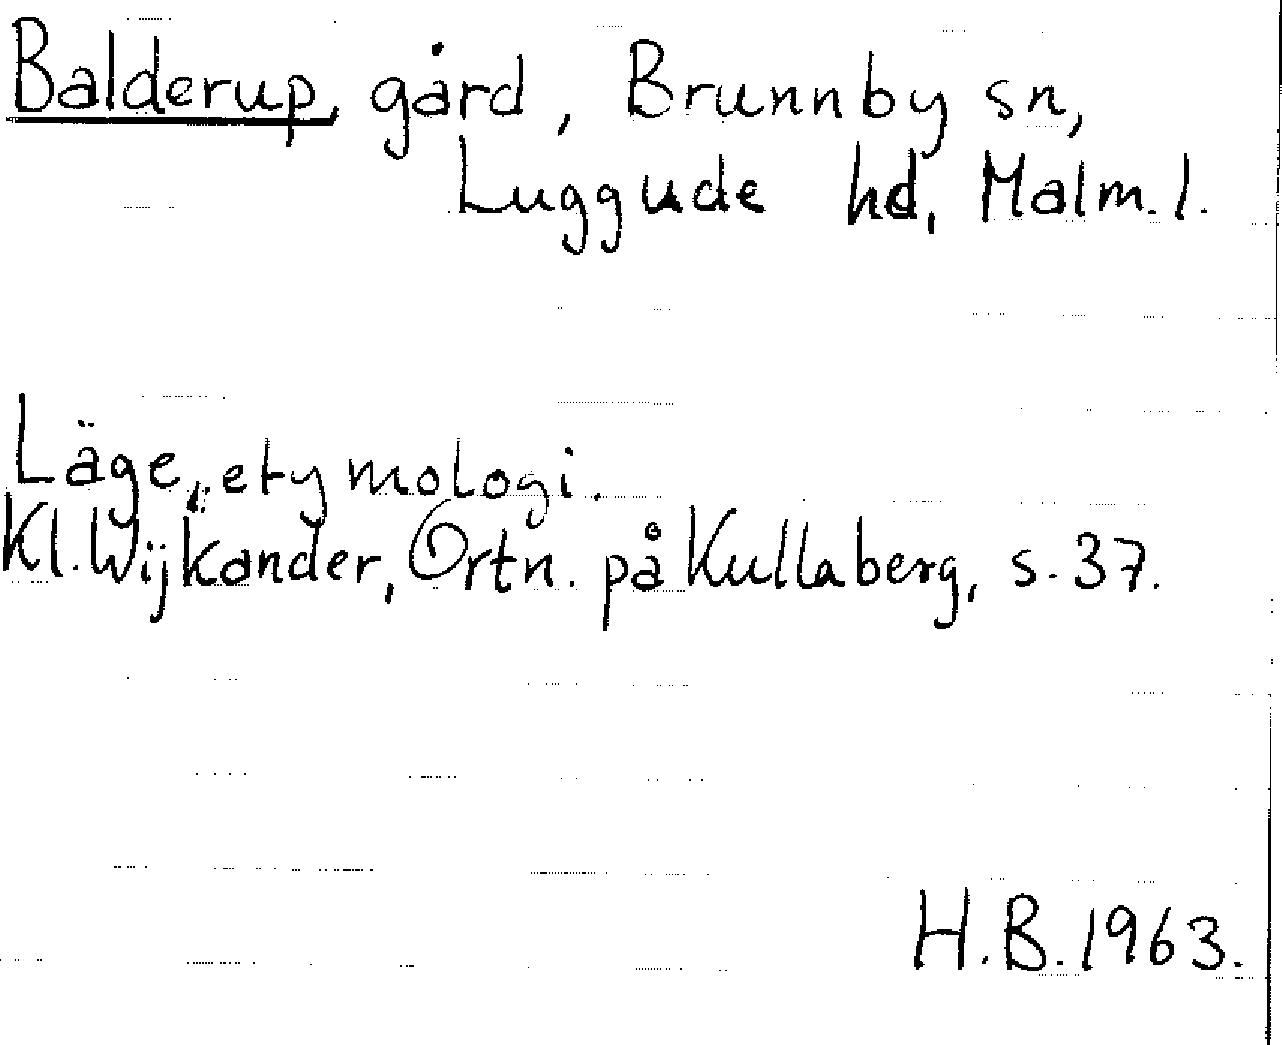 Balderup, gård, Brunnby sn,
Luggude hd, Malm. l.
Läge, etymologi.
Kl. Wijkander, Ortn. på Kullaberg, s. 37.
H.B. 1963.